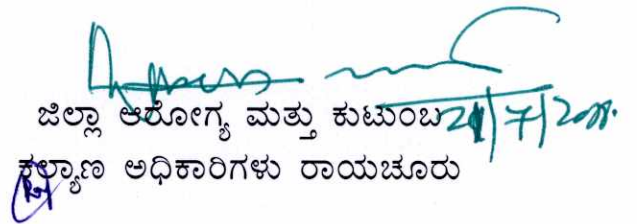 ಜಿಲ್ಲಾ ಆರೋಗ್ಯ ಮತ್ತು ಕುಟುಂಬ
ಕಲ್ಯಾಣ ಅಧಿಕಾರಿಗಳು ರಾಯಚೂರು